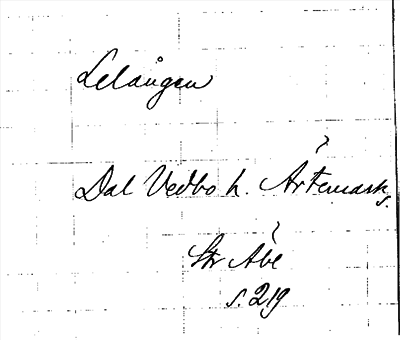 Lelången
Dal Vedbo h. Ärtemarks
s.
Str Åbe
s. 219